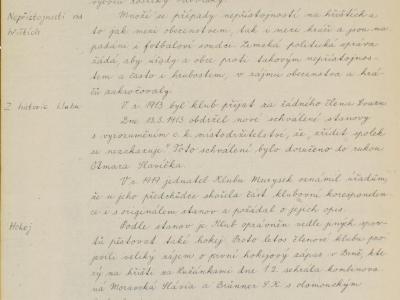 Nepřístojnosti na
hřištích
Množí se případy nepřístojností na hřištích a
to jak mezi obecenstvem, tak i mezi hráči a jsou na-
padáni i fotbaloví soudce. Zemská politická správa
žádá, aby úřady a obce proti takovým nepřístojnos-
tem a často i hrubostem, v zájmu obecenstva a hrá-
čů zakročovaly.
Z historie klubu
V r. 1913 byl klub přijat za řádného člena Svazu
Dne 13.3.1913 obdržel nově schválené stanovy
s vyrozuměním c.k. místodržitelství, že "zřídit spolek
se nezakazuje". Toto schválení bylo doručeno do rukou
Otmara Slavíčka.
V r. 1919 jednatel Klubu Murysek oznámil úřadům,
že u jeho předchůdce shořela část klubovní koresponden-
ce i s originálem stanov a požádal o jejich opis.
Hokej
Podle stanov je Klub oprávněn vedle jiných spor-
tů pěstovat také hokej. Proto letos členové klubu pro-
jevili veliký zájem o první hokejový zápas v Brně, kte-
rý na hřišti za Lužánkami dne 12. sehrála kombinova-
ná Moravská Slávia a Brünner S.K. s olomouckým